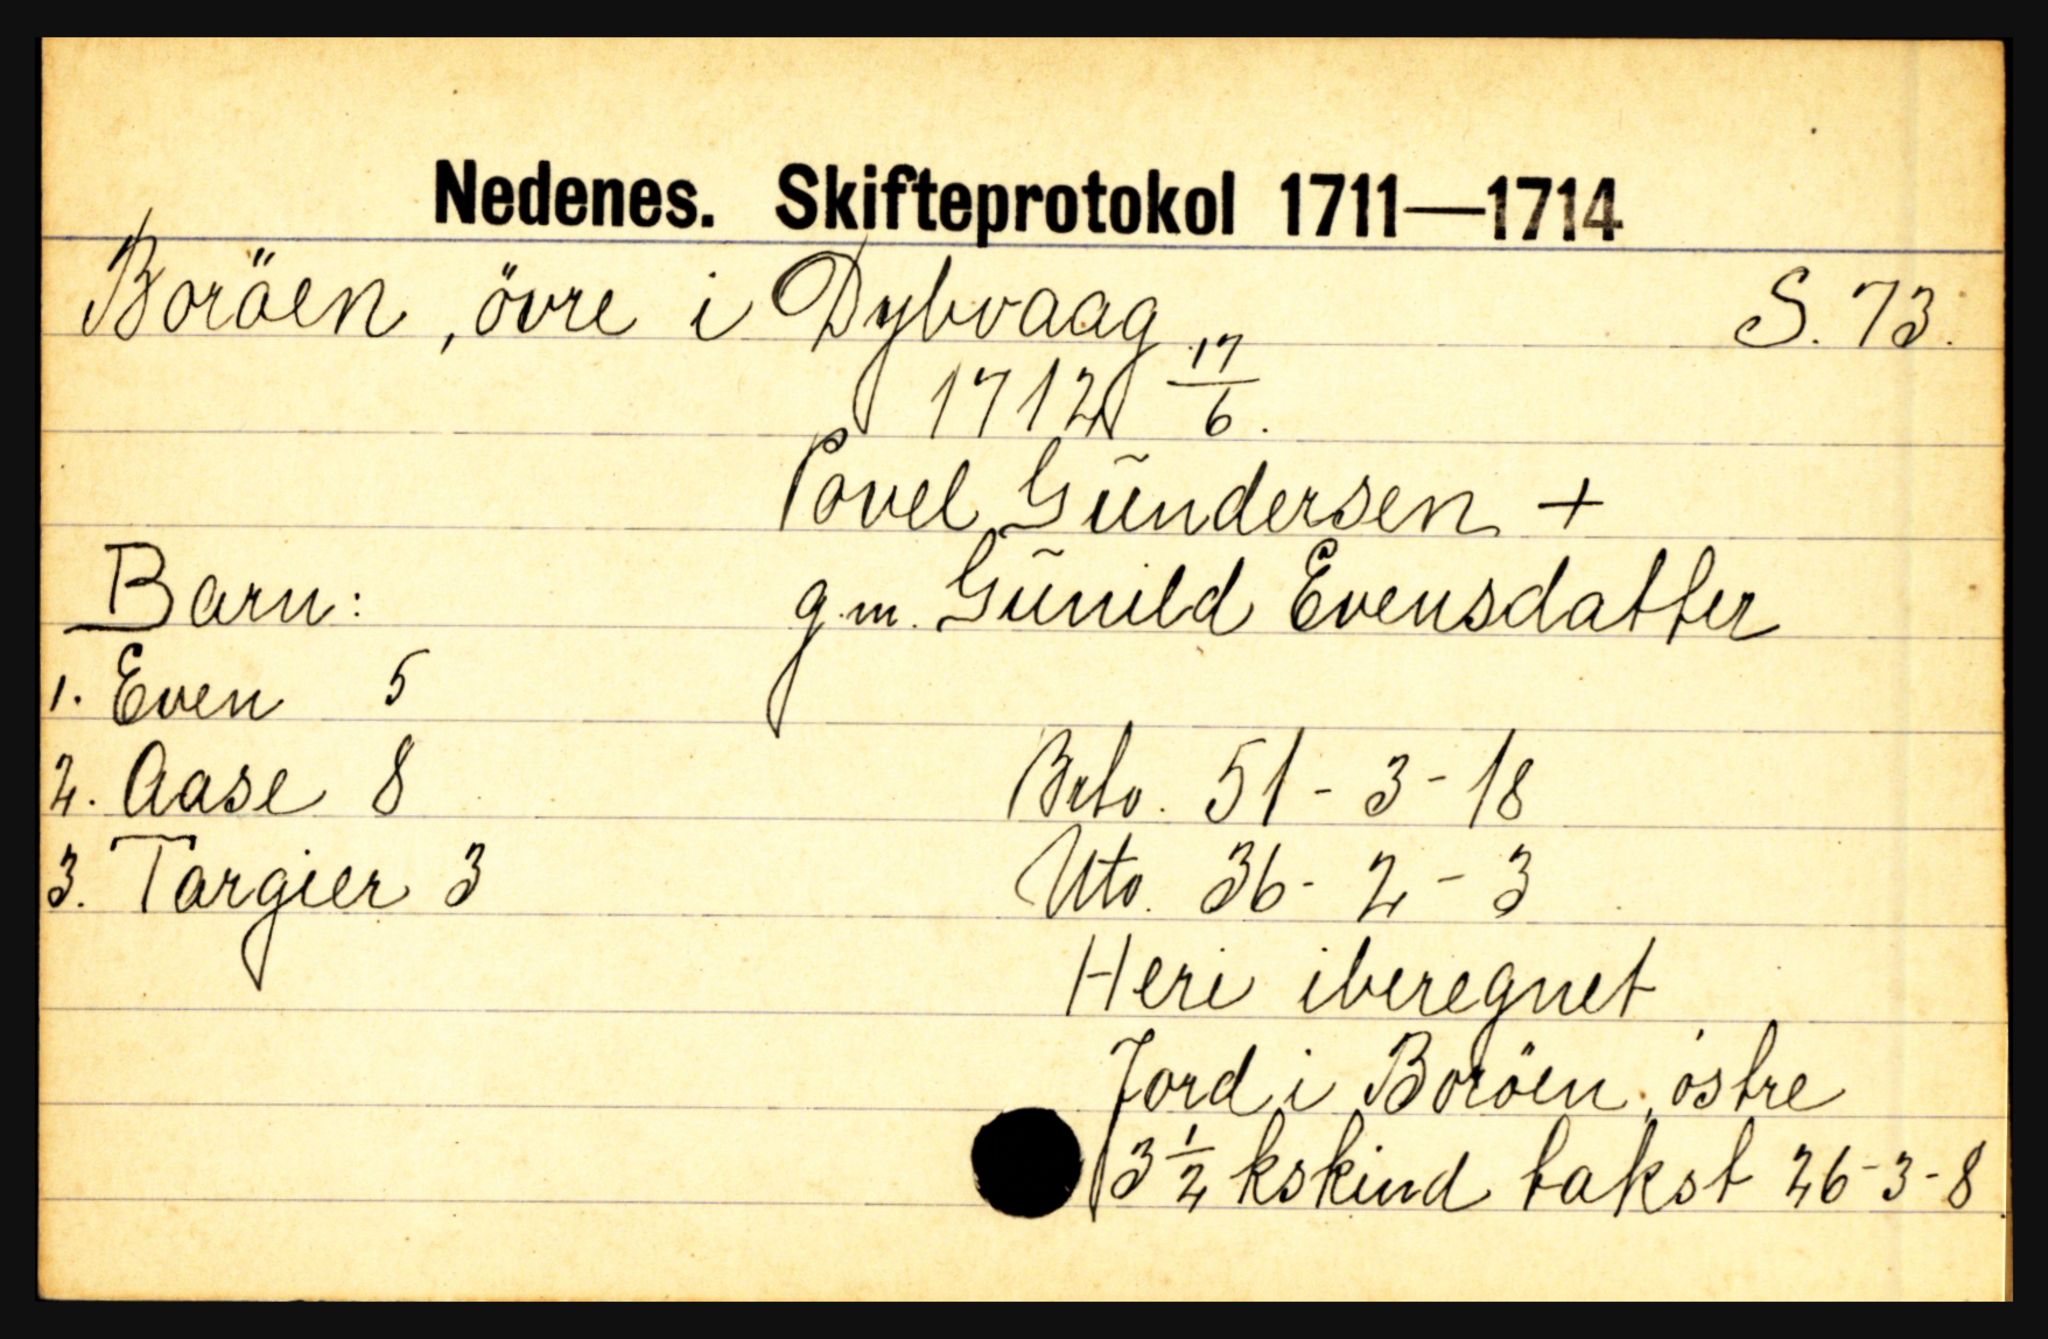 Nedenes. Skifteprotokol 1711—1714
Boröen, övre i Dybvaag S. 73.
1712 17/6.
Povel Gũndersen +
Barn: g.m. Gũnild Evensdatter
1. Even 5
2. Aase 8 Brto. 51 - 3 - 18
3. Targier 3 Nto. 36 - 2 - 3
Heri iberegnet
Jord i Boröen, östre
3 1/2 kskind takst 26-3-8